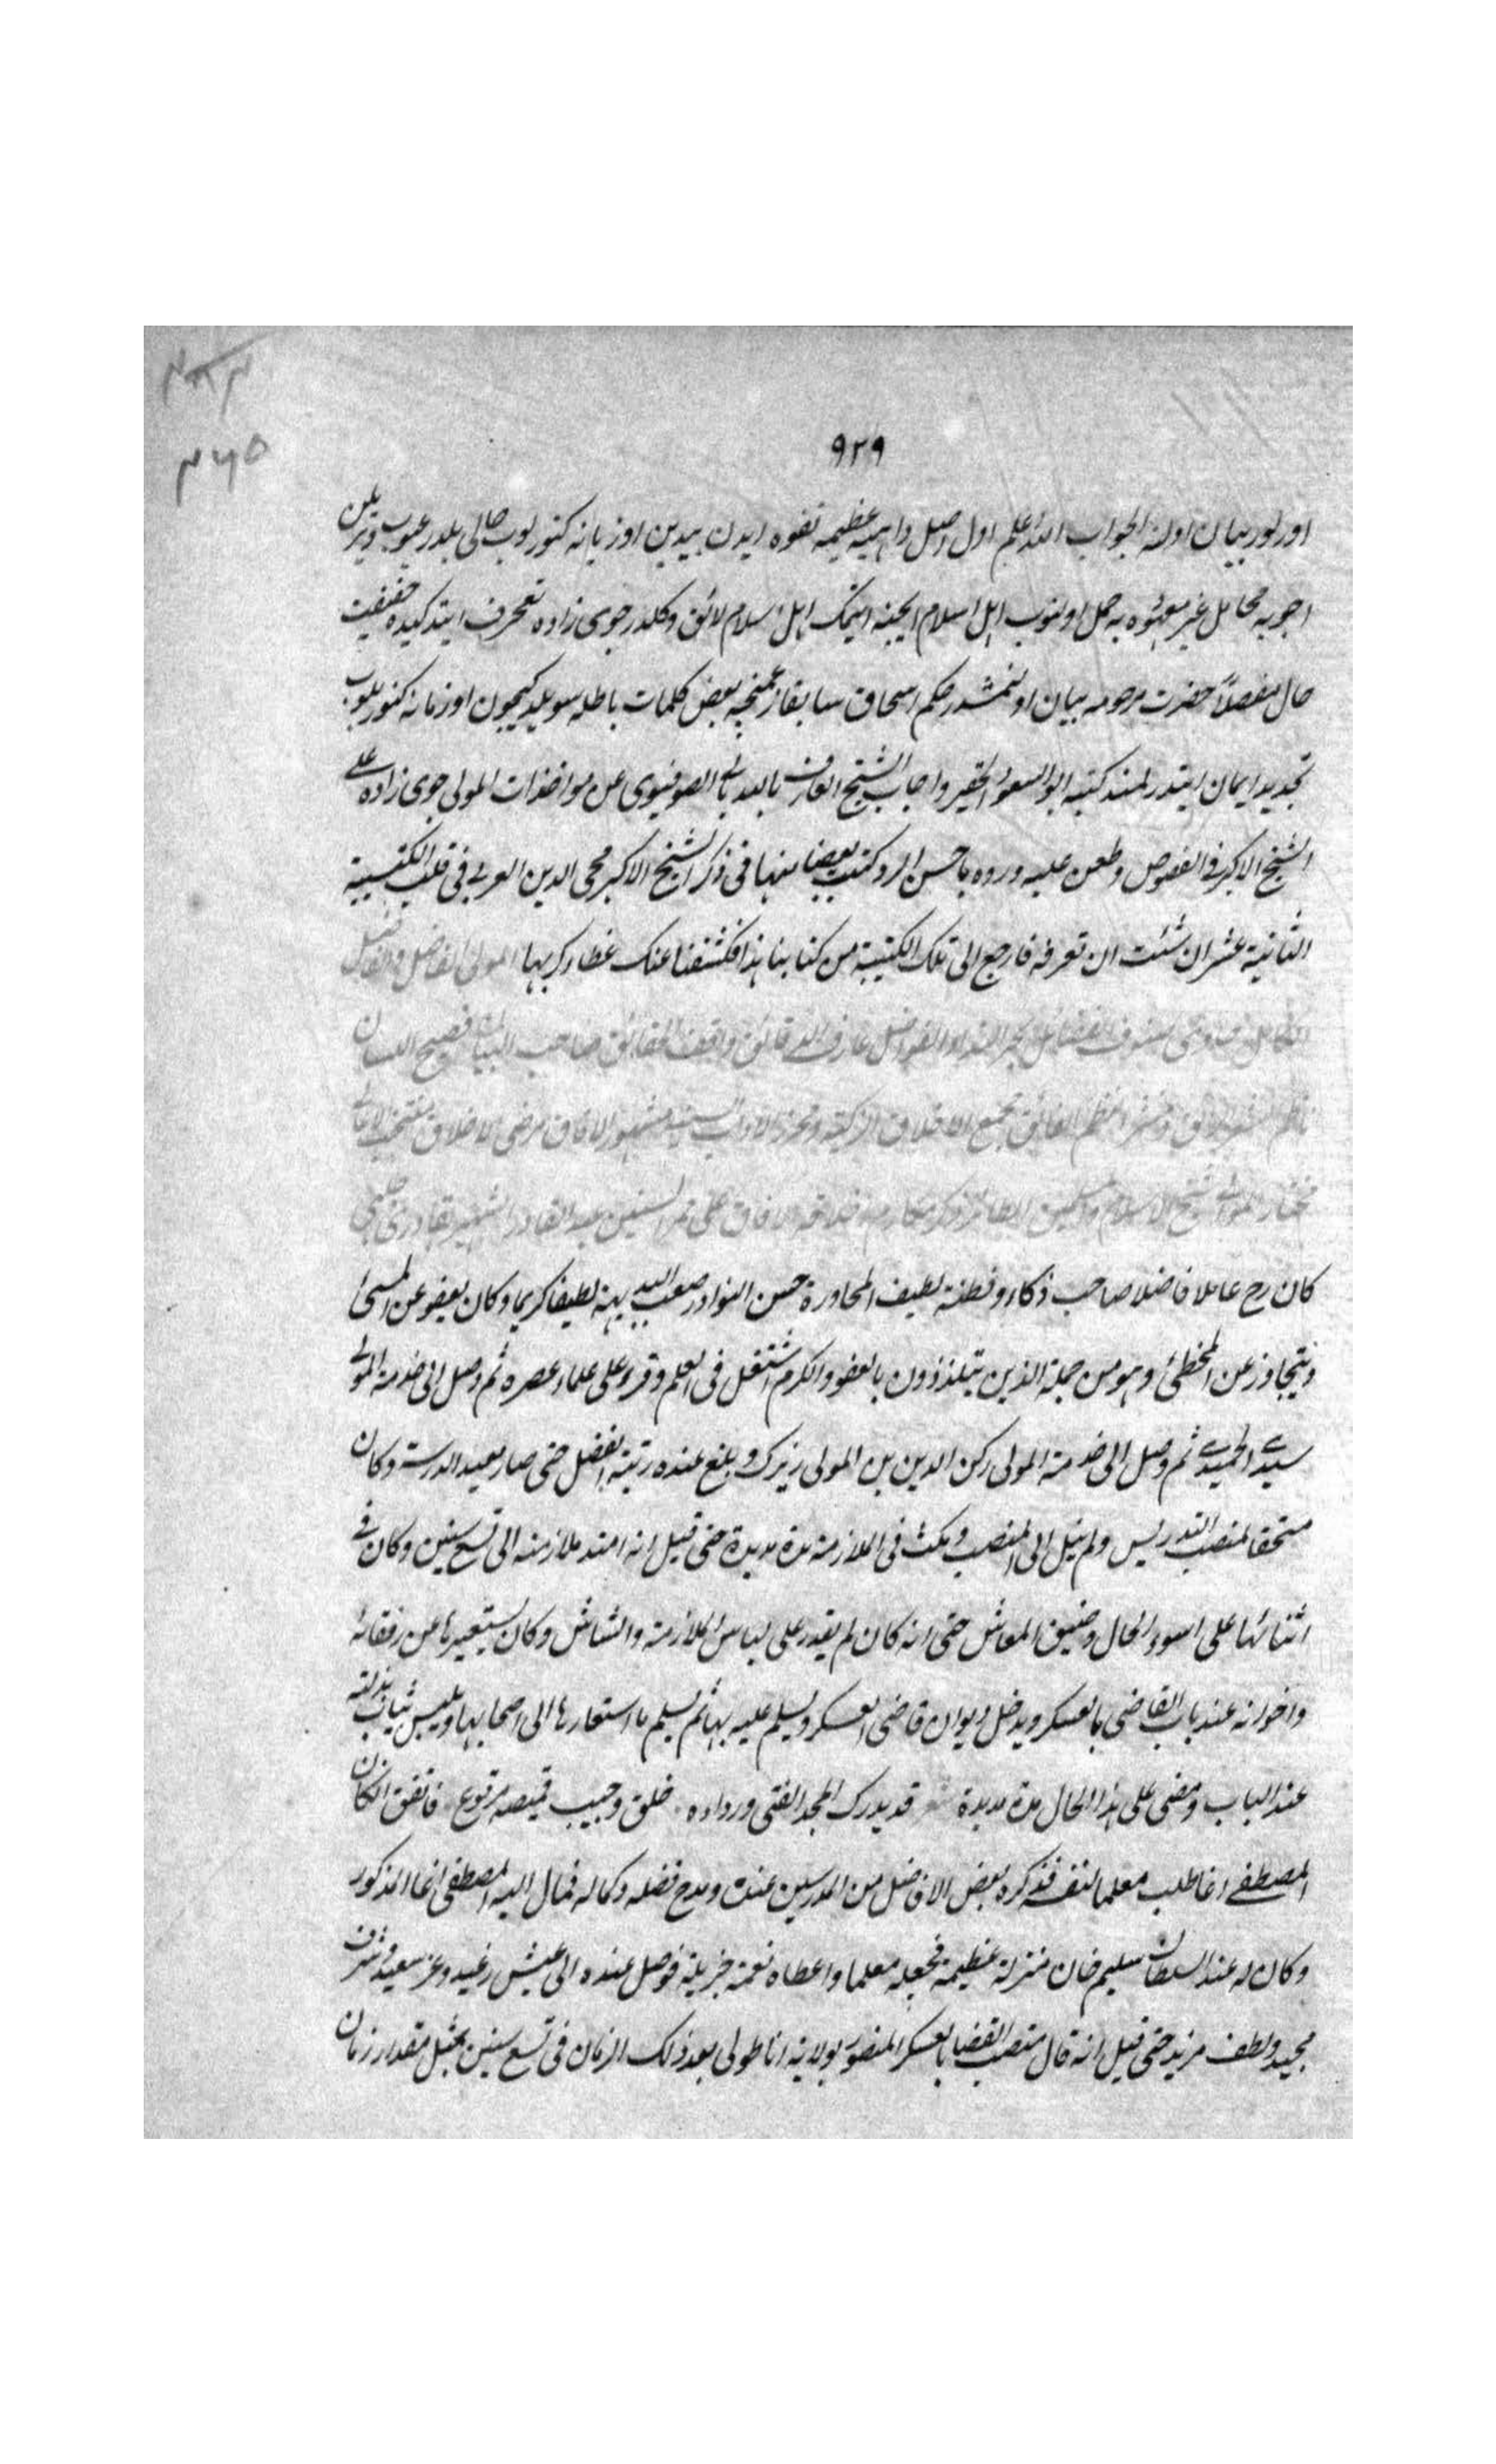 ٩٢٩
٣٦٥
اورلور بيان اولنه الجواب الله اعلم اول اصل داهيه عظيمه تفوه ايدن بيدين اوزيانه كتورلوب حالى بلدرعيوب ويريلن
اجوبه محامل غير معهوده يه حمل اولنوب اهل اسلام ايچنه ايتمك اهل اسلام لائق دكلدر جوى زاده تحرف ايتدكيده حقيقت
حال مفصلا حضرت مرحومه بيان اولنمشدر حكم اسحاق سابقا زعمنجه بعض كلمات باطله سويلديكيچون اوزمانه كتوريلوب
تجديد ايمان ايتدرلمشدر كتبه ابو السعود الحقير واجاب الشيخ العارف بالله بالى الصوفيوى عن مواخذات المولى جوى زاده على
الشيخ الاكبر فى الفصوص وطعن عليه ورده باحسن الرد وكتبت بعضا منها فى ذكر الشيخ الاكبر محى الدين العربى فى قلب الكتيبة
الثانية عشر ان شئت ان تعرفه فارجع الى تلك الكتيبة من كتابنا هذا فكشفنا عنك غطاء كربها المولى الفاضل
الكامل صنوف الفضائل بحر الفواضل عارف الدقائق واقف الحقائق صاحب البيان فصيح اللسان
ناظم النثر الفائق مجمع الاخلاق الزكية ومحرز الاداب السنية مشهور الافاق مرضى الاخلاق
مختار شيخ الاسلام مكارم اخلاقه الافاق على مر السنين عبد القادر الشهير بقادرى چلبى
كان رح عاملا فاضلا صاحب ذكاء وفطنة لطيف المحاورة حسن النوادر صعب البديهة لطيفا كريما وكان يعفو عن المسئ
ويتجاوز عن المخطئ وهو من جملة الذين يتلذذون بالعفو والكرم اشتغل فى العلم وقرء على علماء عصره ثم وصل الى خدمة المولى
سيدى الحميدى ثم وصل الى خدمة المولى ركن الدين بن المولى زيرك وبلغ عنده رتبة الفضل حتى صار معيد الدرسه وكان
مستحقا لمنصب التدريس ولم ينل الى المنصب ومكث فى الملازمة مدة مديدة حتى قيل انه امتد ملازمته الى تسع سنين وكان فى
اثنائها على اسوء الحال وضيق المعاش حتى انه كان لم يقدر على لباس الملازمة والشاش وكان يستعيرها من رفقائه
واخوانه عند باب القاضى بالعسكر ويدخل ديوان قاضى العسكر ويسلم عليه بها ثم يسلم ما استعارها الى اصحابها ويلبس ثياب بذلته
عند الباب ومضى على هذا الحال مدة مديدة شعر قد يدرك المجد الفتى ورداءه خلق وجيب قميصه مرقوع فاتفق ان كان
المصطفى اغا طلب معلما لنفسه فذكره بعض الافاضل من المدرسين عنده ومدح فضله وكماله فمال اليه المصطفى اغا المذكور
وكان له عند السلطان سليم خان منزلة عظيمة فجعله معلما واعطاه نعمة جزيلة فوصل عنده الى عيش رغيد وعز سعيد وشرف
مجيد ولطف مزيد حتى قيل انه قال منصب القضا بالعسكر المنصور بولاية اناطولى بعد ذلك الزمان فى تسع سنين بمثل مقدار زمان